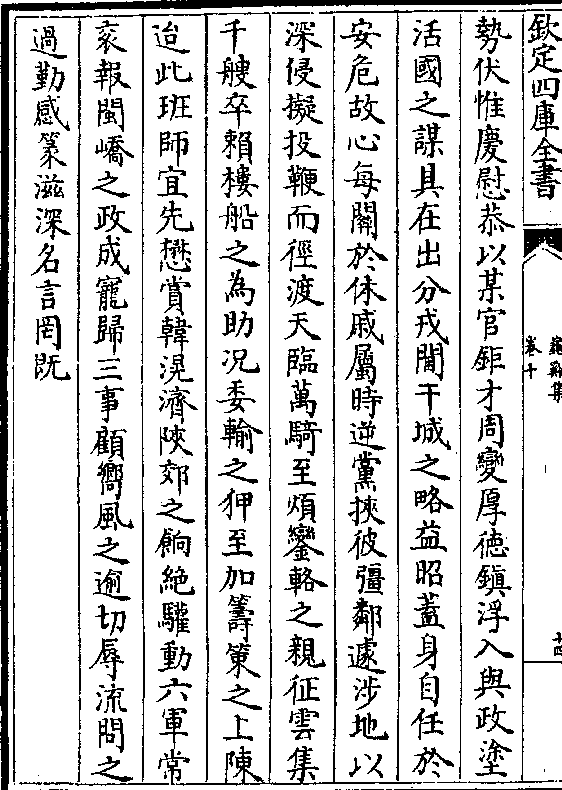 欽定四庫全書
龜谿集
卷十
十四
勢伏惟慶慰恭以某官鉅才周變厚德鎮浮入與政塗
活國之謀具在出分戎閫干城之略益昭蓋身自任於
安危故心每關於休戚屬時逆黨挾彼彊鄰遽涉地以
深侵擬投鞭而徑渡天臨萬騎至煩鑾輅之親征雲集
千艘卒賴樓船之為助況委輸之狎至加籌策之上陳
迨此班師宜先懋賞韓滉濟陝郊之餉絶驩動六軍常
袞報閩嶠之政成寵歸三事顧嚮風之逾切辱流問之
過勤感篆滋深名言罔既